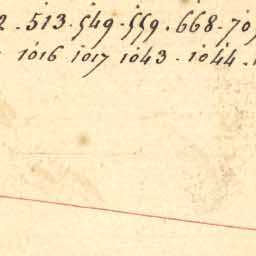 2 . 513 . 549 . 559 . 668 . 70
1016 1017 1043 . 1044 .